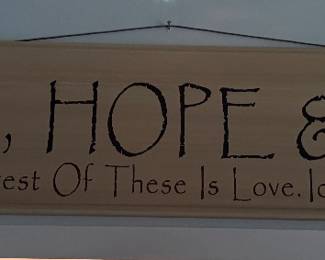 , HOPE &
est Of These Is Love. Ic